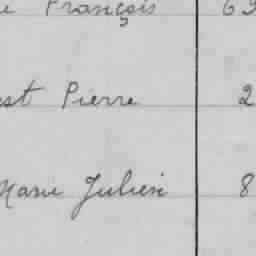 François 6
st Pierre 2
Marie Julien 8